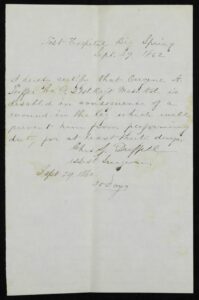 Post Hospital Big Spring
Sept. 29 1862
I hereby certify that Eugene A.
Co. A Regt is
disabled in consequence of a
wound in the leg which will
prevent him from performing
duty for at least thirty days.
Chas J.
Surgeon
Sept 29. 1862
30 days